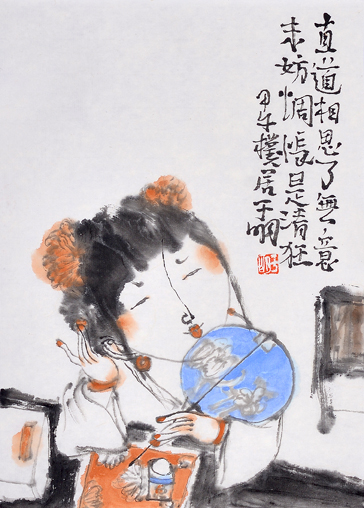 直道相思了無意
未妨惆悵是清狂
甲午樸居子明